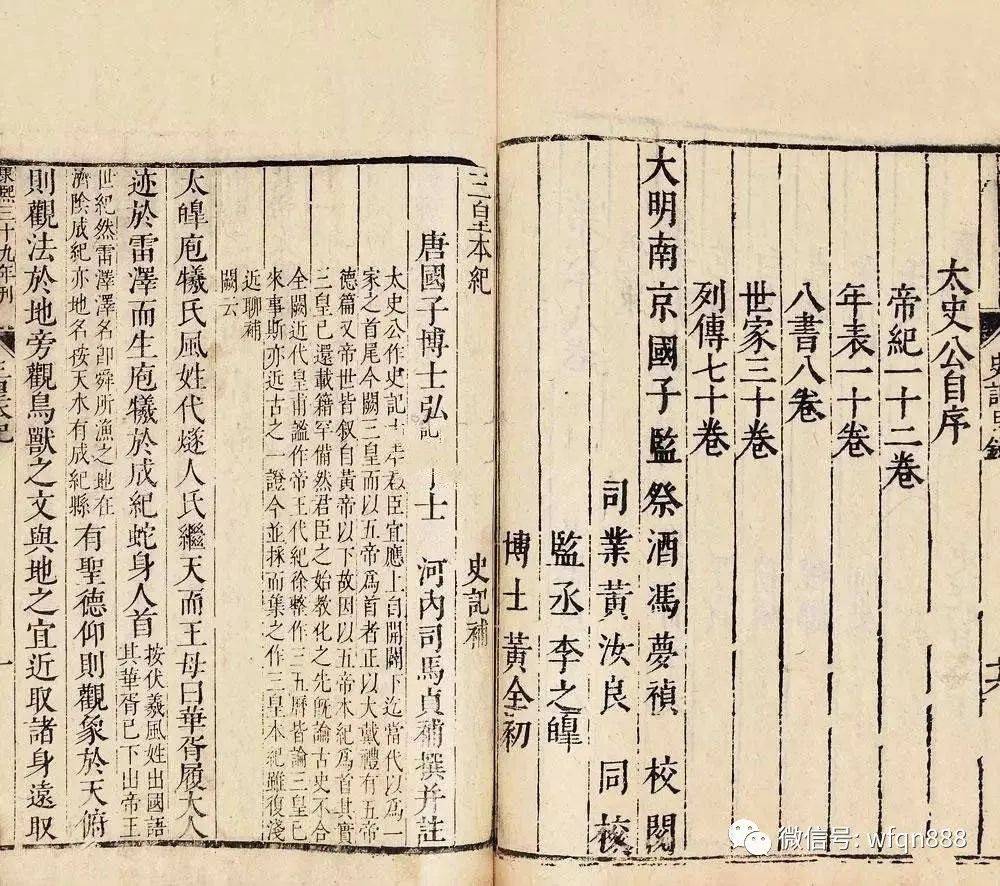 史記目錄
太史公自序
帝紀一十二卷
年表一十卷
八書八卷
世家三十卷
列傳七十卷
大明南京國子監祭酒馮夢禎 校閱
司業黃汝良 同校
監丞李之皥
博士黃全初
三皇本紀 史記補
唐國子博士弘 士 河內司馬貞補撰并註
太史公作史記 君臣宜應上自開闢下迄當代以爲一
家之首尾今闕三皇而以五帝爲首者正以大戴禮有五帝
德篇又帝世皆叙自黃帝以下故因以五帝本紀爲首其實
三皇已還載籍罕備然君臣之始教化之先旣論古史不合
全闕近代皇甫謐作帝王代紀徐整作三五曆皆論三皇已
來事斯亦近古之一證今並採而集之作三皇本紀雖復淺
近聊補
闕云
太皥庖犧氏風姓代燧人氏繼天而王母曰華胥履大人
迹於雷澤而生庖犧於成紀蛇身人首
按伏羲風姓出國語
其華胥已下出帝王
世紀然雷澤澤名卽舜所漁之地在
濟陰成紀亦地名按天水有成紀縣
有聖德仰則觀象於天俯
則觀法於地旁觀鳥獸之文與地之宜近取諸身遠取
康熙三十九年刊 三皇本紀 一
微信号: wfqn888